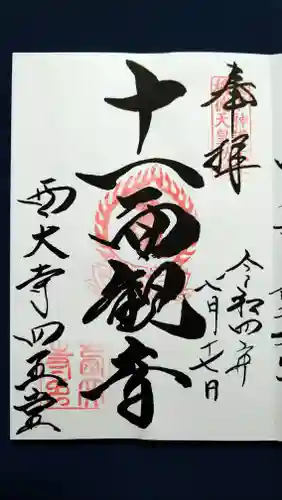 奉拝
令和四年
八月十七日
十一面観音
西大寺四王堂